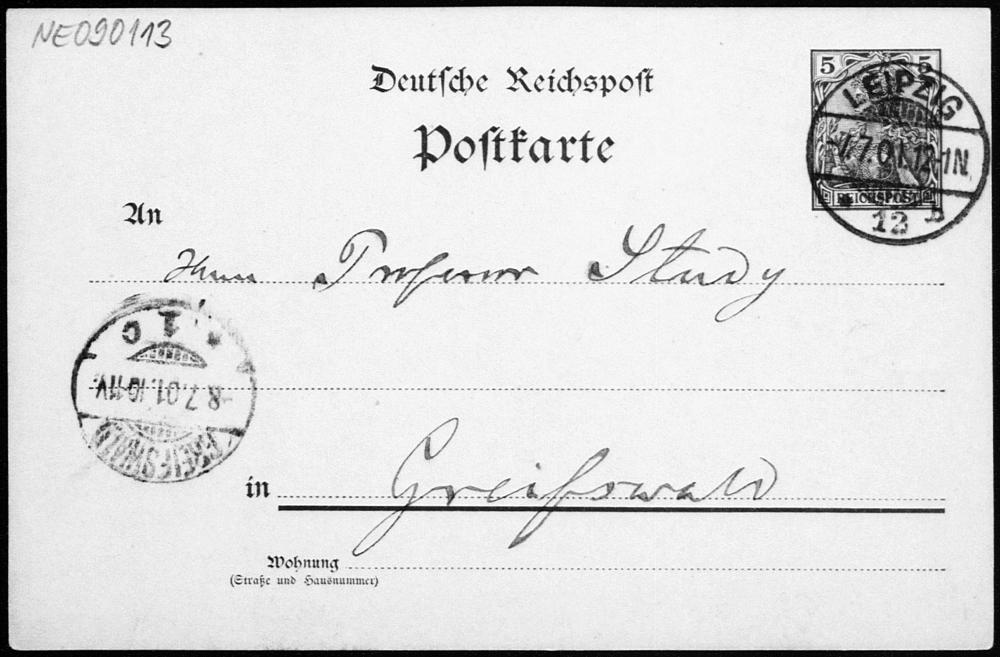 NE090113
Deutsche Reichspost
Postkarte
5 5
REICHSPOST
LEIPZIG
7.7.01.12-1N.
12 b
An
Herrn Professor Study
1 c
-8.7.01.10-11V.
GREIFSWALD
in Greifswald
Wohnung
(Straße und Hausnummer)